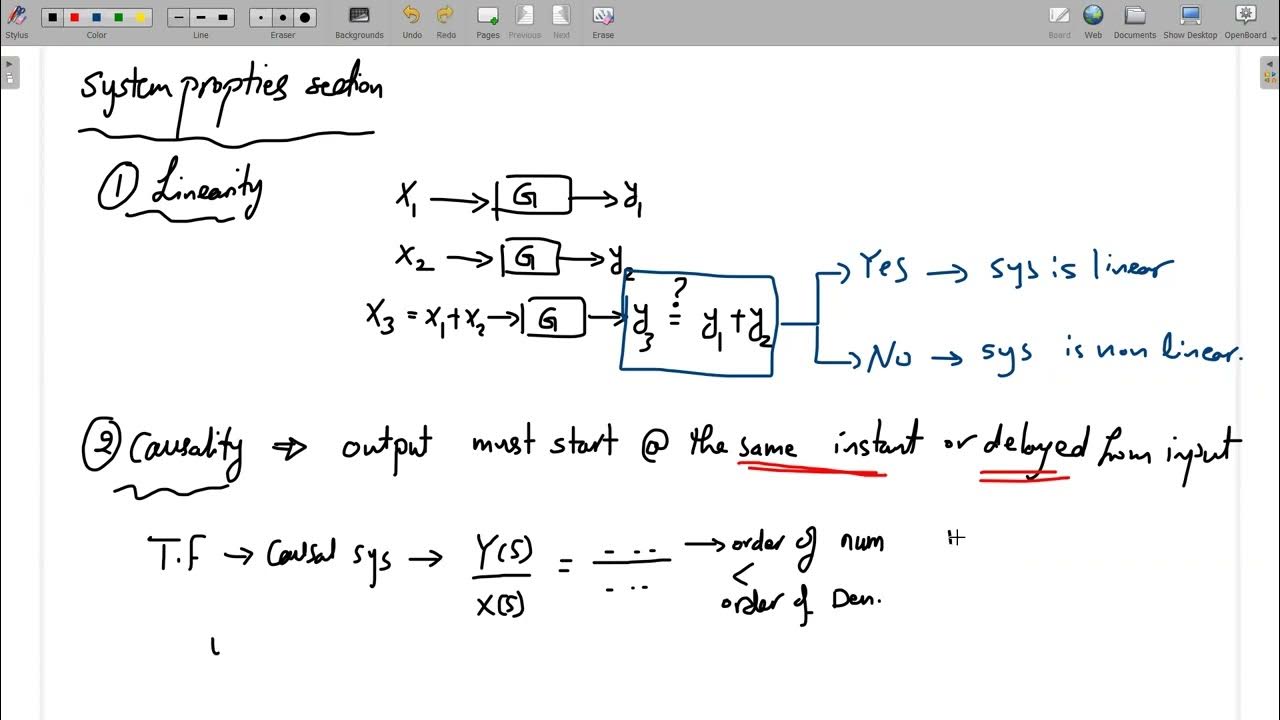 Stylus Color Line Eraser Backgrounds Undo Redo Pages Previous Next Erase Board Web Documents Show Desktop OpenBoard
System propties section
① Linearity
X₁ → G → y₁
X₂ → G → y₂
X₃ = x₁ + x₂ → G → y₃ ?= y₁ + y₂
Yes → sys is linear
No → sys is non linear.
② Causality ⇒ output must start @ the same instant or delayed from input
T.F → Causal sys → Y(S)/X(S) = - - - / - - - → order of num
<
order of Den.